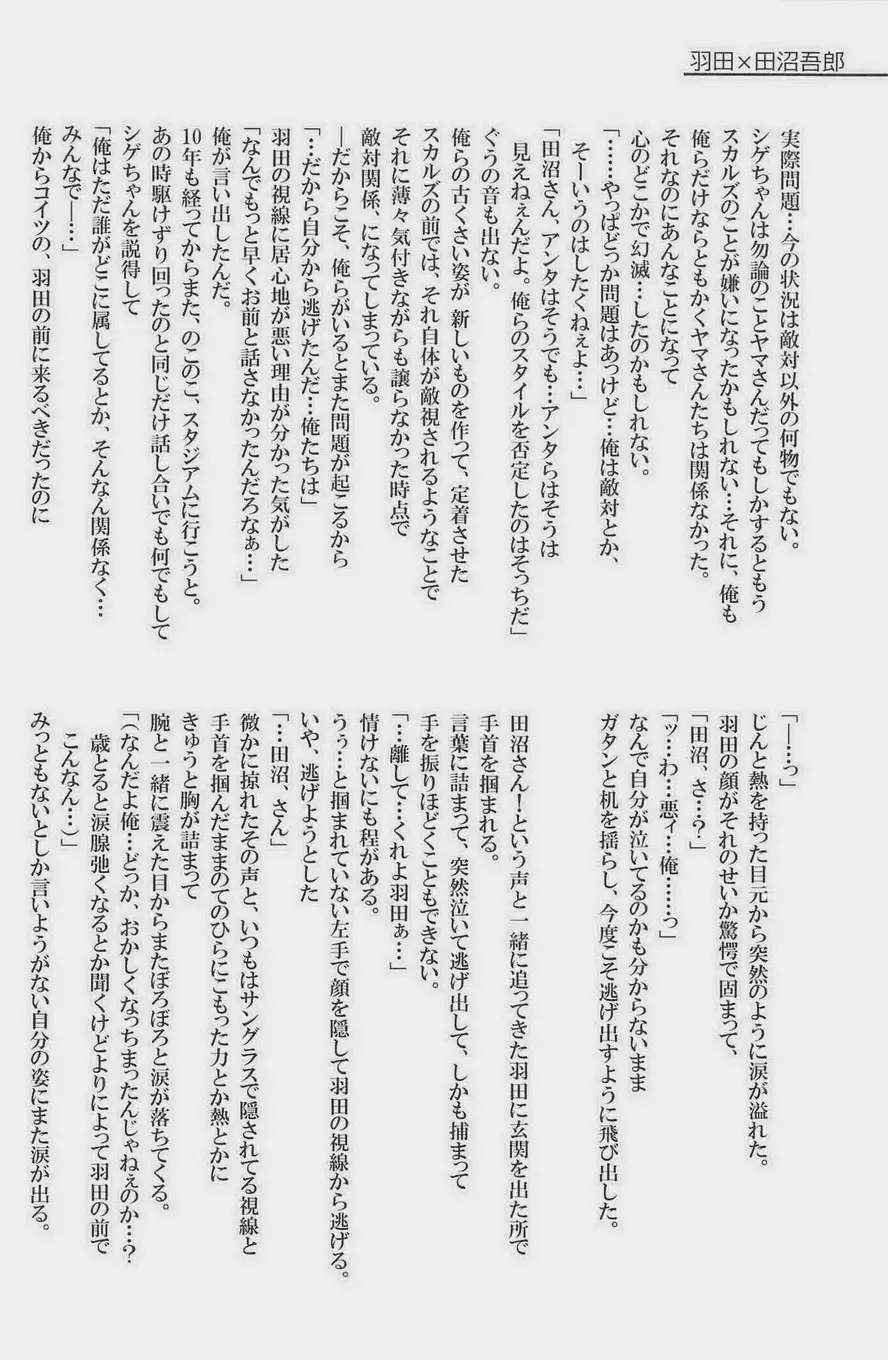 羽田×田沼吾郎
実際問題…今の状況は敵対以外の何物でもない。
シゲちゃんは勿論のことヤマさんだってもしかするともう
スカルズのことが嫌いになったかもしれない…それに、俺も
俺らだけならともかくヤマさんたちは関係なかった。
それなのにあんなことになって
心のどこかで幻滅…したのかもしれない。
「……やっぱどっか問題はあっけど…俺は敵対とか、
そーいうのはしたくねぇよ…」
「田沼さん、アンタはそうでも…アンタらはそうは
見えねぇんだよ。俺らのスタイルを否定したのはそっちだ」
ぐうの音も出ない。
俺らの古くさい姿が 新しいものを作って、定着させた
スカルズの前では、それ自体が敵視されるようなことで
それに薄々気付きながらも譲らなかった時点で
敵対関係、になってしまっている。
―だからこそ、俺らがいるとまた問題が起こるから
「…だから自分から逃げたんだ…俺たちは」
羽田の視線に居心地が悪い理由が分かった気がした
「なんでもっと早くお前と話さなかったんだろなぁ…」
俺が言い出したんだ。
10年も経ってからまた、のこのこ、スタジアムに行こうと。
あの時駆けずり回ったのと同じだけ話し合いでも何でもして
シゲちゃんを説得して
「俺はただ誰がどこに属してるとか、そんなん関係なく…
みんなで―…」
俺からコイツの、羽田の前に来るべきだったのに
「―…っ」
じんと熱を持った目元から突然のように涙が溢れた。
羽田の顔がそれのせいか驚愕で固まって、
「田沼、さ…?」
「ッ…わ…悪ィ…俺……っ」
なんで自分が泣いてるのかも分からないまま
ガタンと机を揺らし、今度こそ逃げ出すように飛び出した。
田沼さん！という声と一緒に追ってきた羽田に玄関を出た所で
手首を掴まれる。
言葉に詰まって、突然泣いて逃げ出して、しかも捕まって
手を振りほどくこともできない。
「…離して…くれよ羽田ぁ…」
情けないにも程がある。
うぅ…と掴まれていない左手で顔を隠して羽田の視線から逃げる。
いや、逃げようとした
「…田沼、さん」
微かに掠れたその声と、いつもはサングラスで隠されてる視線と
手首を掴んだままのてのひらにこもった力とか熱とかに
きゅうと胸が詰まって
腕と一緒に震えた目からまたぼろぼろと涙が落ちてくる。
「（なんだよ俺…どっか、おかしくなっちまったんじゃねぇのか…？
歳とると涙腺弛くなるとか聞くけどよりによって羽田の前で
こんなん…）」
みっともないとしか言いようがない自分の姿にまた涙が出る。